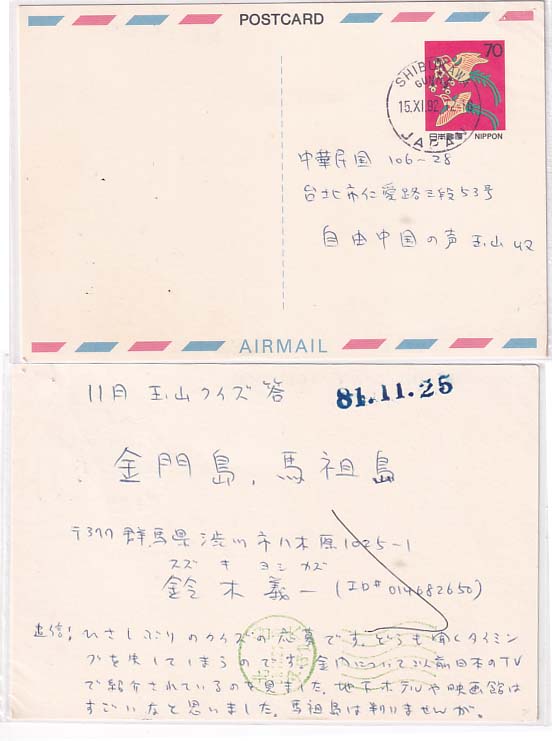 POSTCARD
70
SHIBUKAWA
GUNMA
15.XI.92 12-16
JAPAN
日本郵便
NIPPON
中華民国 106-28
台北市仁愛路三段53号
自由中国の声 玉山 収
AIRMAIL
11月 玉山クイズ 答
81.11.25
金門島, 馬祖島
〒377 群馬県渋川市八木原1025-1
スズキ ヨシカズ
鈴木義一 (ID# 014682650)
追信! ひさしぶりのクイズの応募です。どうも聞くタイミン
グを失してしまうのです。金門について以前日本のTV
で紹介されているのを見ました。地下ホテルや映画館は
すごいなと思いました。馬祖島は判りませんが。